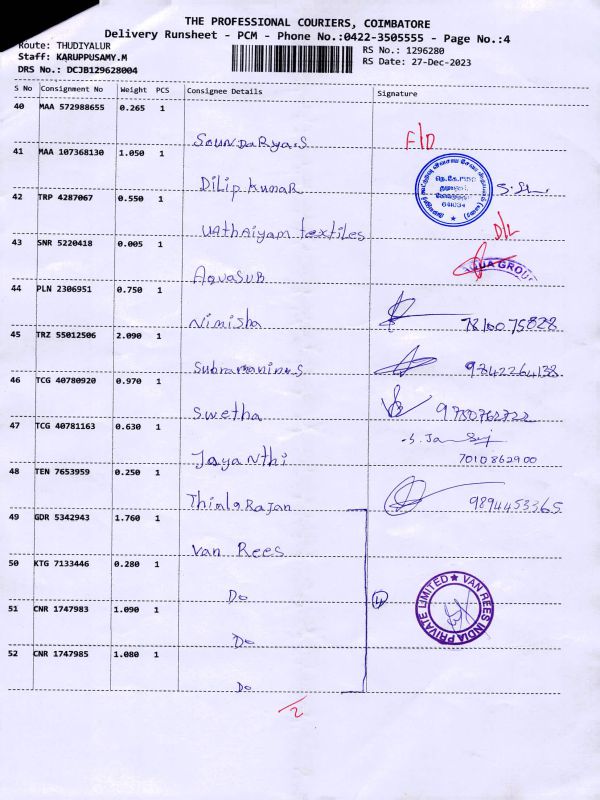 THE PROFESSIONAL COURIERS, COIMBATORE
Delivery Runsheet - PCM - Phone No.:0422-3505555 - Page No.:4
Route: THUDIYALUR
RS No.: 1296280
Staff: KARUPPUSAMY.M
RS Date: 27-Dec-2023
DRS No.: DCJB129628004
S No Consignment No Weight PCS Consignee Details Signature
40 MAA 572988655 0.265 1
Soundarya.S F/D
41 MAA 107368130 1.050 1
Dilip kumar
641034
42 TRP 4287067 0.550 1
Uathaiyam textiles D/L
43 SNR 5220418 0.005 1
Aquasub AQUA GROUP
44 PLN 2306951 0.750 1
Nimisha 7810075828
45 TRZ 55012506 2.090 1
9742264138
46 TCG 40780920 0.970 1
Swetha 9750762722
47 TCG 40781163 0.630 1
Jayanthi 7010862900
48 TEN 7653959 0.250 1
Thiala Rajan 9894453365
49 GDR 5342943 1.760 1
Van Rees
50 KTG 7133446 0.280 1
Do 4
VAN REES INDIA PRIVATE LIMITED
51 CNR 1747983 1.090 1
Do
52 CNR 1747985 1.080 1
Do